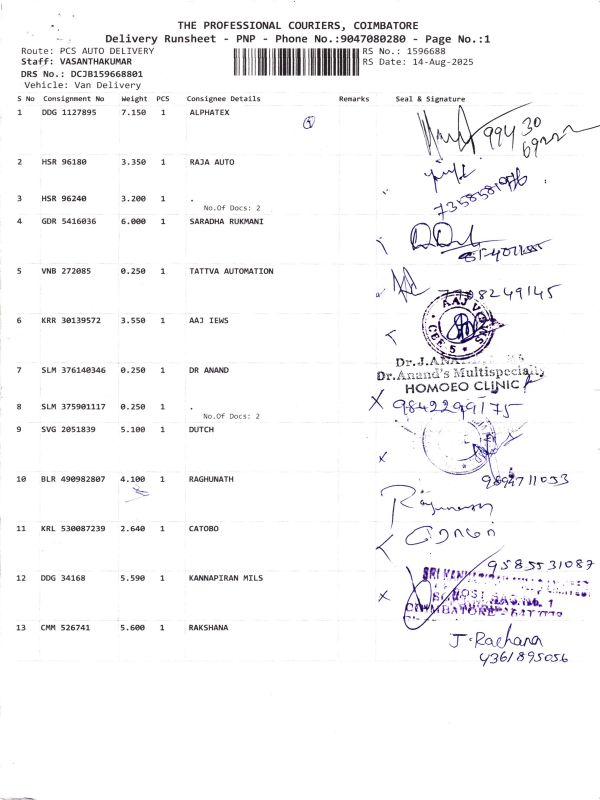 THE PROFESSIONAL COURIERS, COIMBATORE
Delivery Runsheet - PNP - Phone No.:9047080280 - Page No.:1
Route: PCS AUTO DELIVERY RS No.: 1596688
Staff: VASANTHAKUMAR RS Date: 14-Aug-2025
DRS No.: DCJB159668801
Vehicle: Van Delivery
S No Consignment No Weight PCS Consignee Details Remarks Seal & Signature
1 DDG 1127895 7.150 1 ALPHATEX
99430
2 HSR 96180 3.350 1 RAJA AUTO
3 HSR 96240 3.200 1 .
No.Of Docs: 2
4 GDR 5416036 6.000 1 SARADHA RUKMANI
5 VNB 272085 0.250 1 TATTVA AUTOMATION
8249145
6 KRR 30139572 3.550 1 AAJ IEWS
CBE-5
7 SLM 376140346 0.250 1 DR ANAND
Dr.Anand's Multispeciality
HOMOEO CLINIC
8 SLM 375901117 0.250 1 .
No.Of Docs: 2
9842299175
9 SVG 2051839 5.100 1 DUTCH
10 BLR 490982807 4.100 1 RAGHUNATH
9894711033
11 KRL 530087239 2.640 1 CATOBO
9585531087
12 DDG 34168 5.590 1 KANNAPIRAN MILS
13 CMM 526741 5.600 1 RAKSHANA
J. Rachana
4361895056